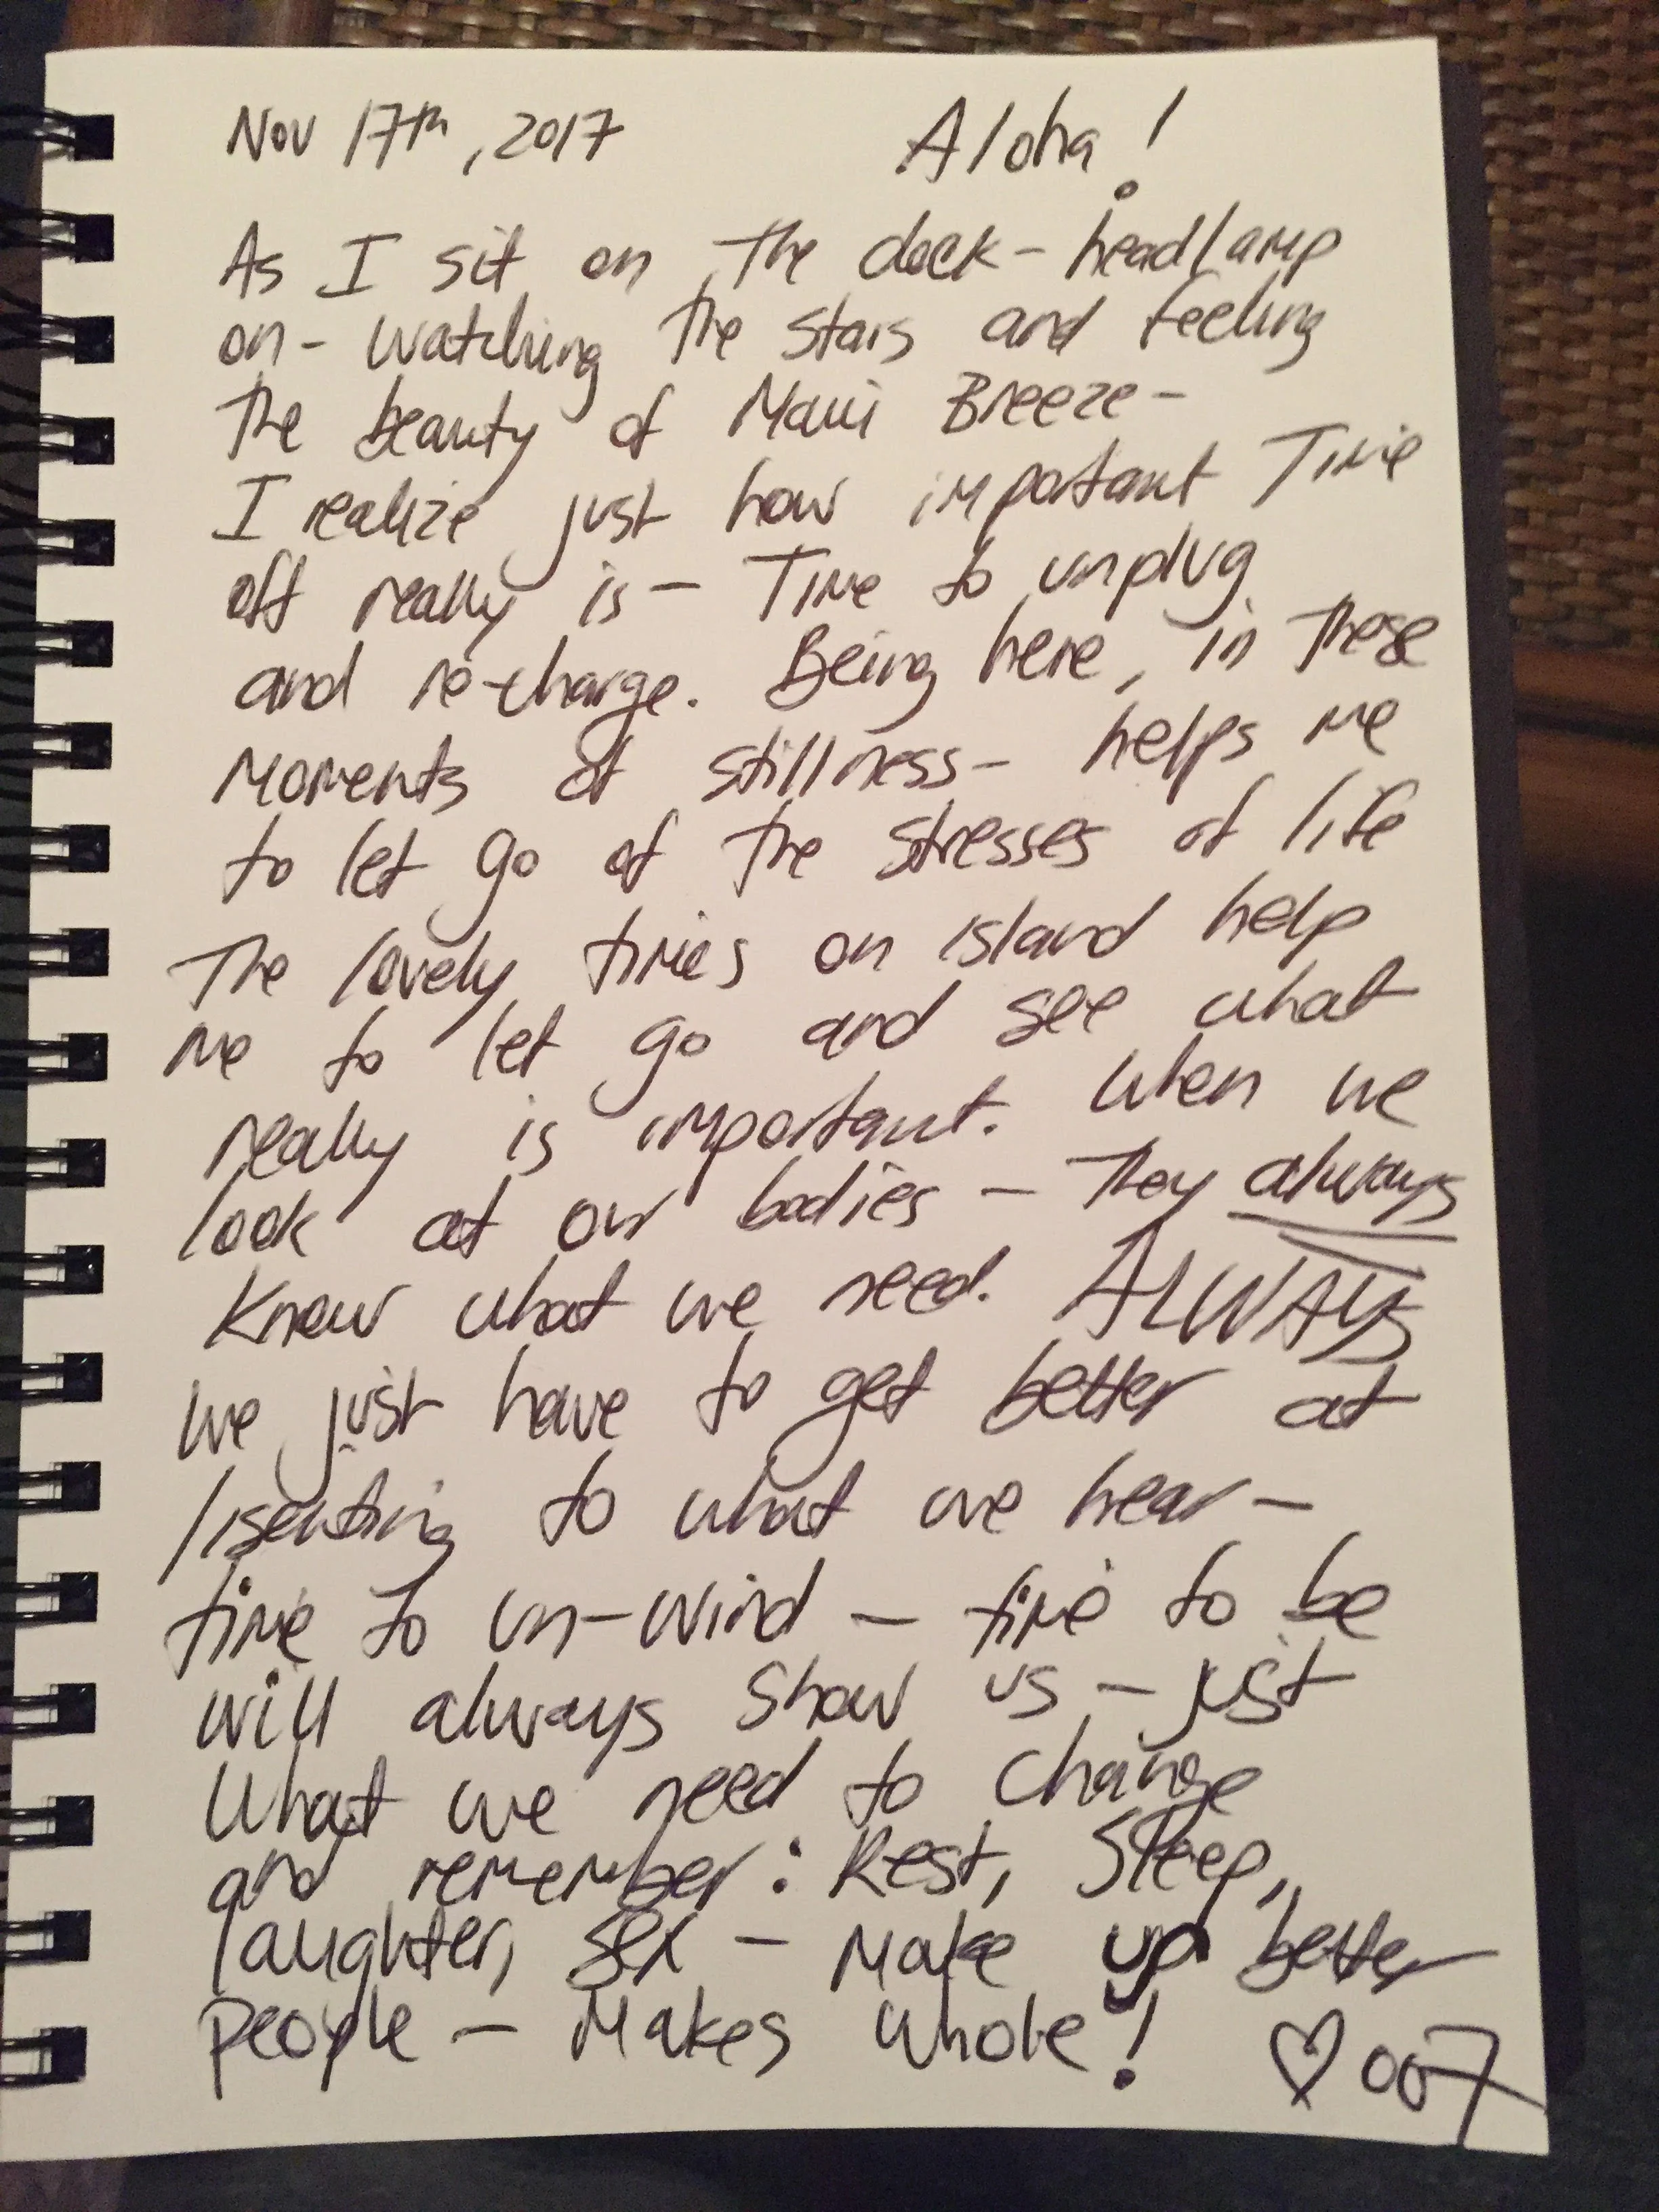 Nov 17th, 2017 Aloha!
As I sit on the deck - headlamp
on - watching the stars and feeling
the beauty of Maui Breeze -
I realize just how important Time
off really is - Time to unplug
and re-charge. Being here, in these
moments of stillness - helps me
to let go of the stresses of life
The lovely times on island help
me to let go and see what
really is important. When we
look at our bodies - They always
know what we need. ALWAYS
we just have to get better at
lisenting to what we hear -
time to un-wind - time to be
will always show us - just
what we need to change
and remember: Rest, Sleep,
laughter, sex - make up better
people - Makes whole! ♡ 007